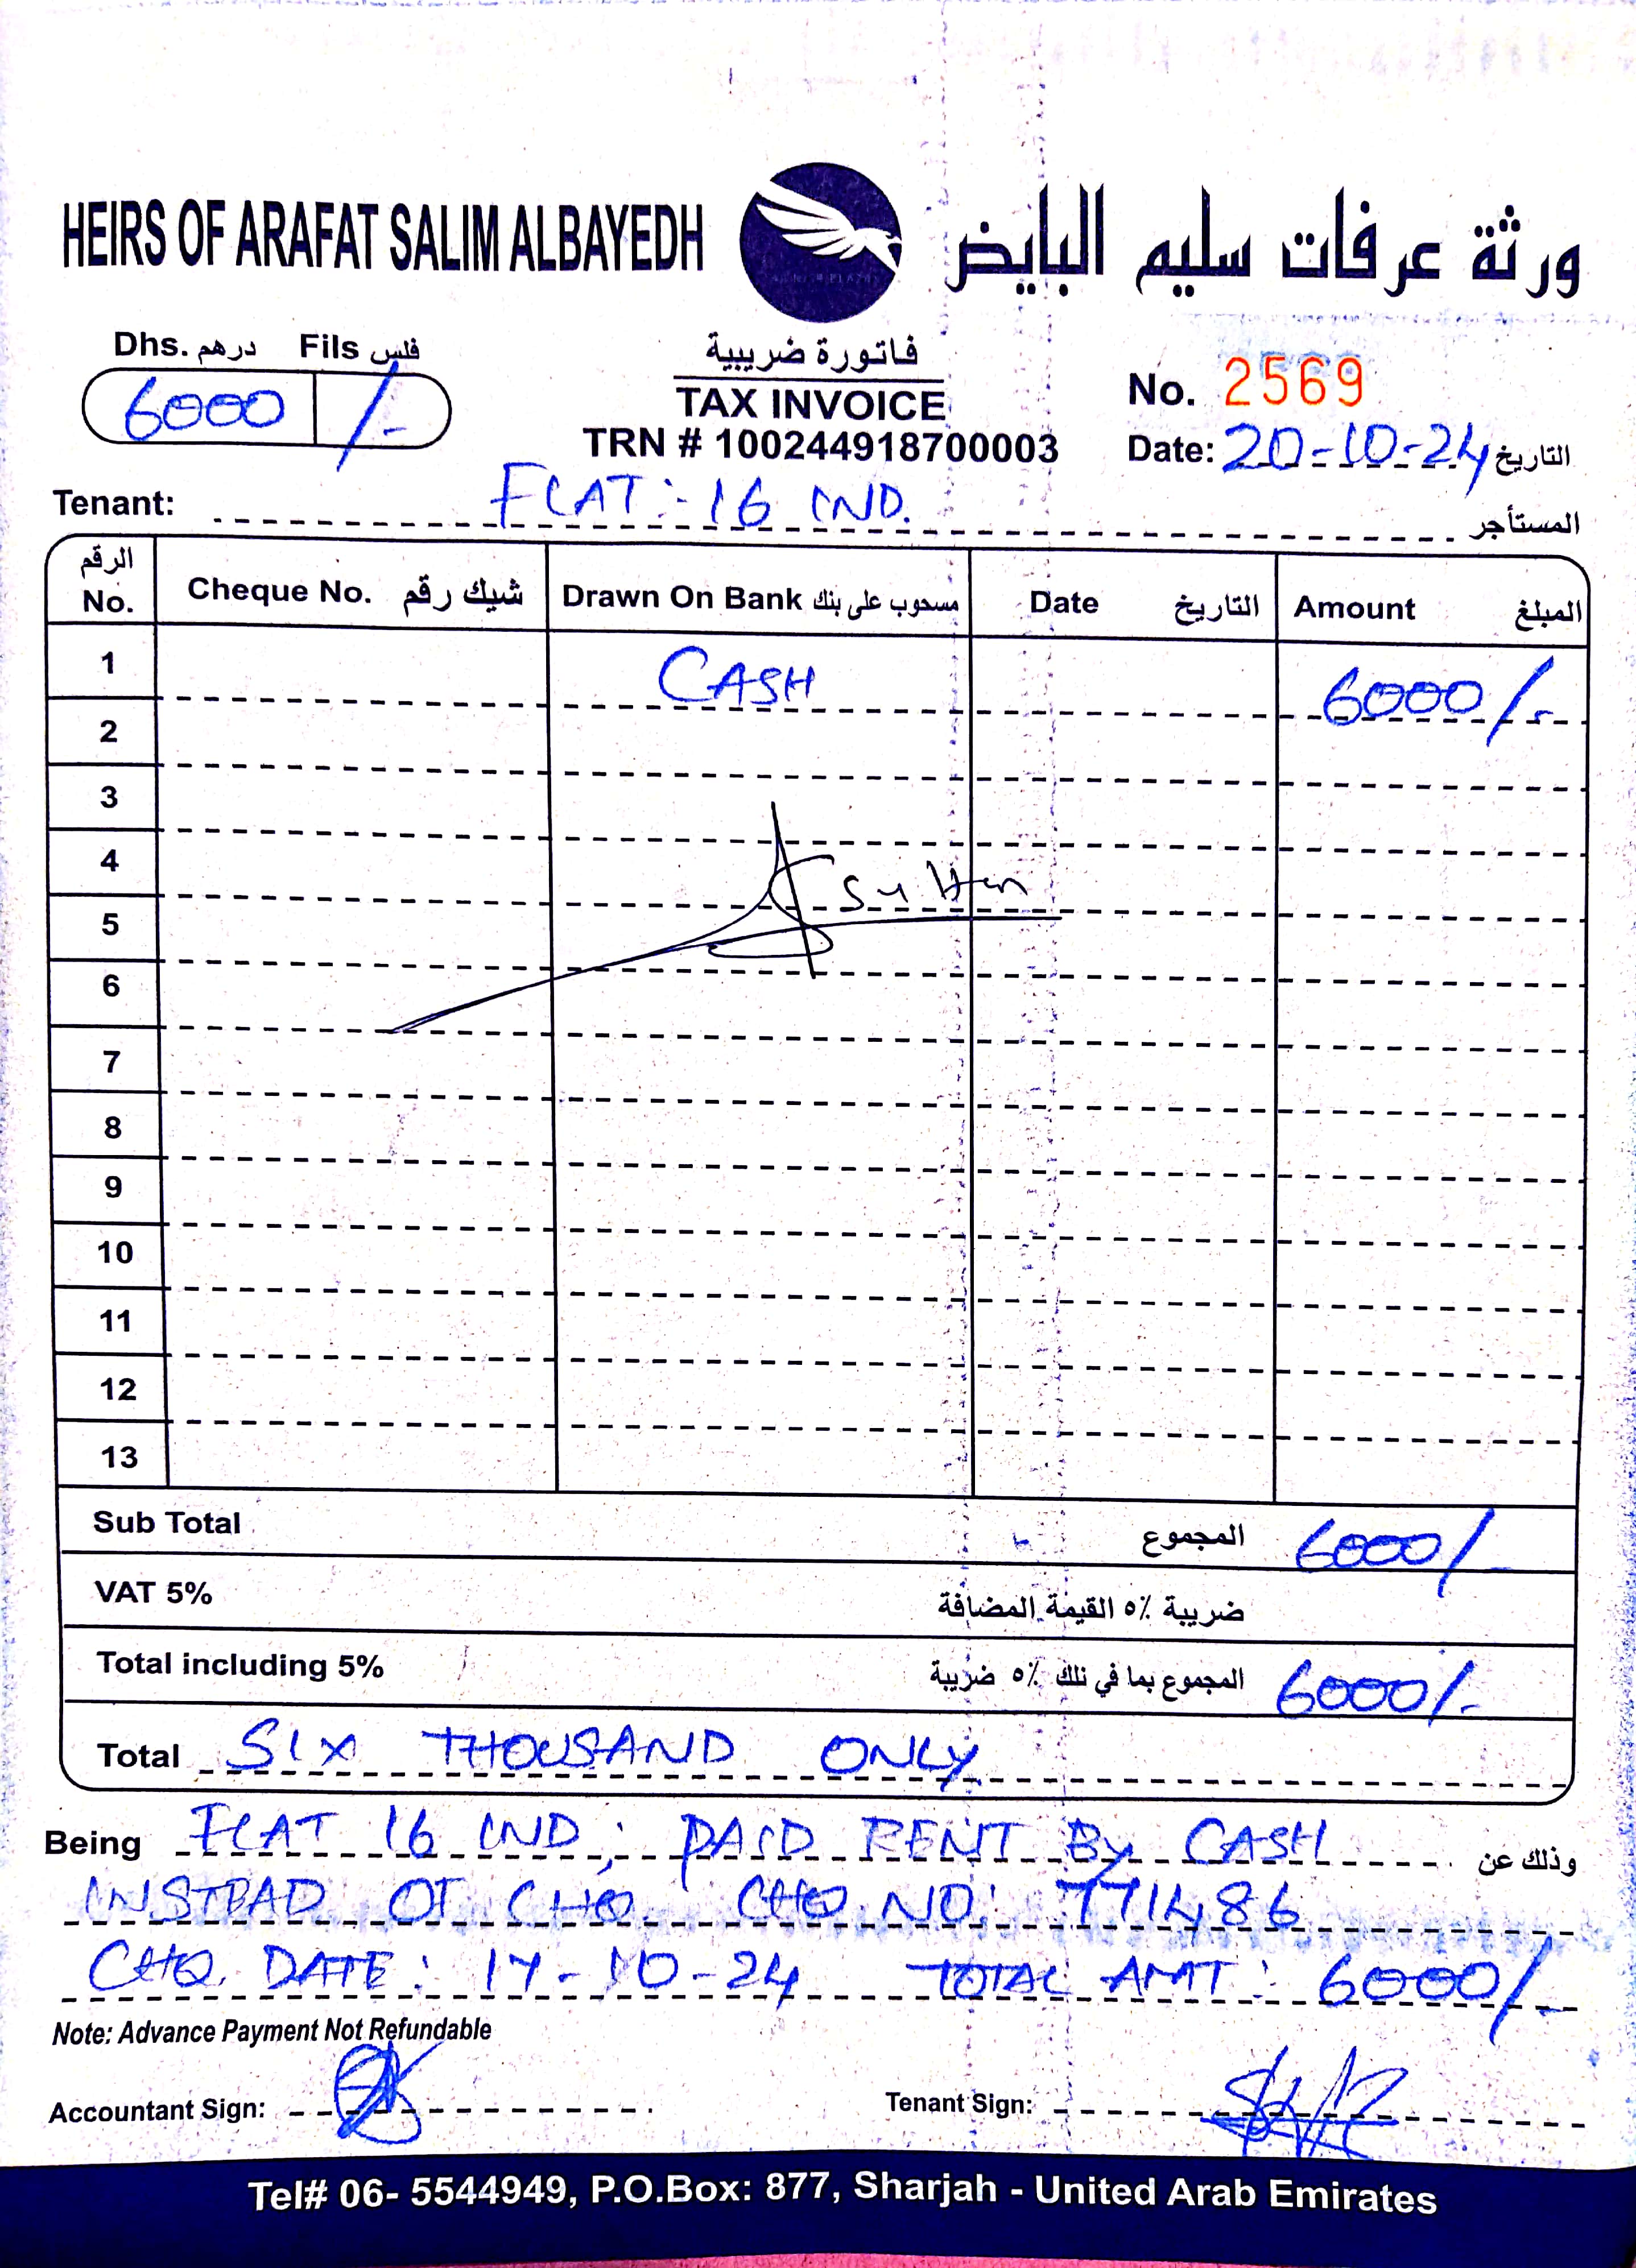 HEIRS OF ARAFAT SALIM ALBAYEDH ورثة عرفات سليم البايض
Dhs. درهم Fils فلس
6000 /-
فاتورة ضريبية
TAX INVOICE
TRN # 100244918700003
No. 2569
Date: 20-10-24 التاريخ
Tenant: FLAT:- 16 IND. المستأجر
الرقم No. Cheque No. شيك رقم Drawn On Bank مسحوب على بنك Date التاريخ Amount المبلغ
1 CASH 6000/-
2
3
4 Sultan
5
6
7
8
9
10
11
12
13
Sub Total المجموع 6000/-
VAT 5% ضريبة ٥٪ القيمة المضافة
Total including 5% المجموع بما في ذلك ٥٪ ضريبة 6000/-
Total SIX THOUSAND ONLY
Being FLAT 16 IND; PAID RENT By CASH وذلك عن
INSTEAD OF CHQ. CHQ. NO: 771486
CHQ. DATE: 17-10-24 TOTAL AMT: 6000/-
Note: Advance Payment Not Refundable
Accountant Sign: Tenant Sign:
Tel# 06- 5544949, P.O.Box: 877, Sharjah - United Arab Emirates